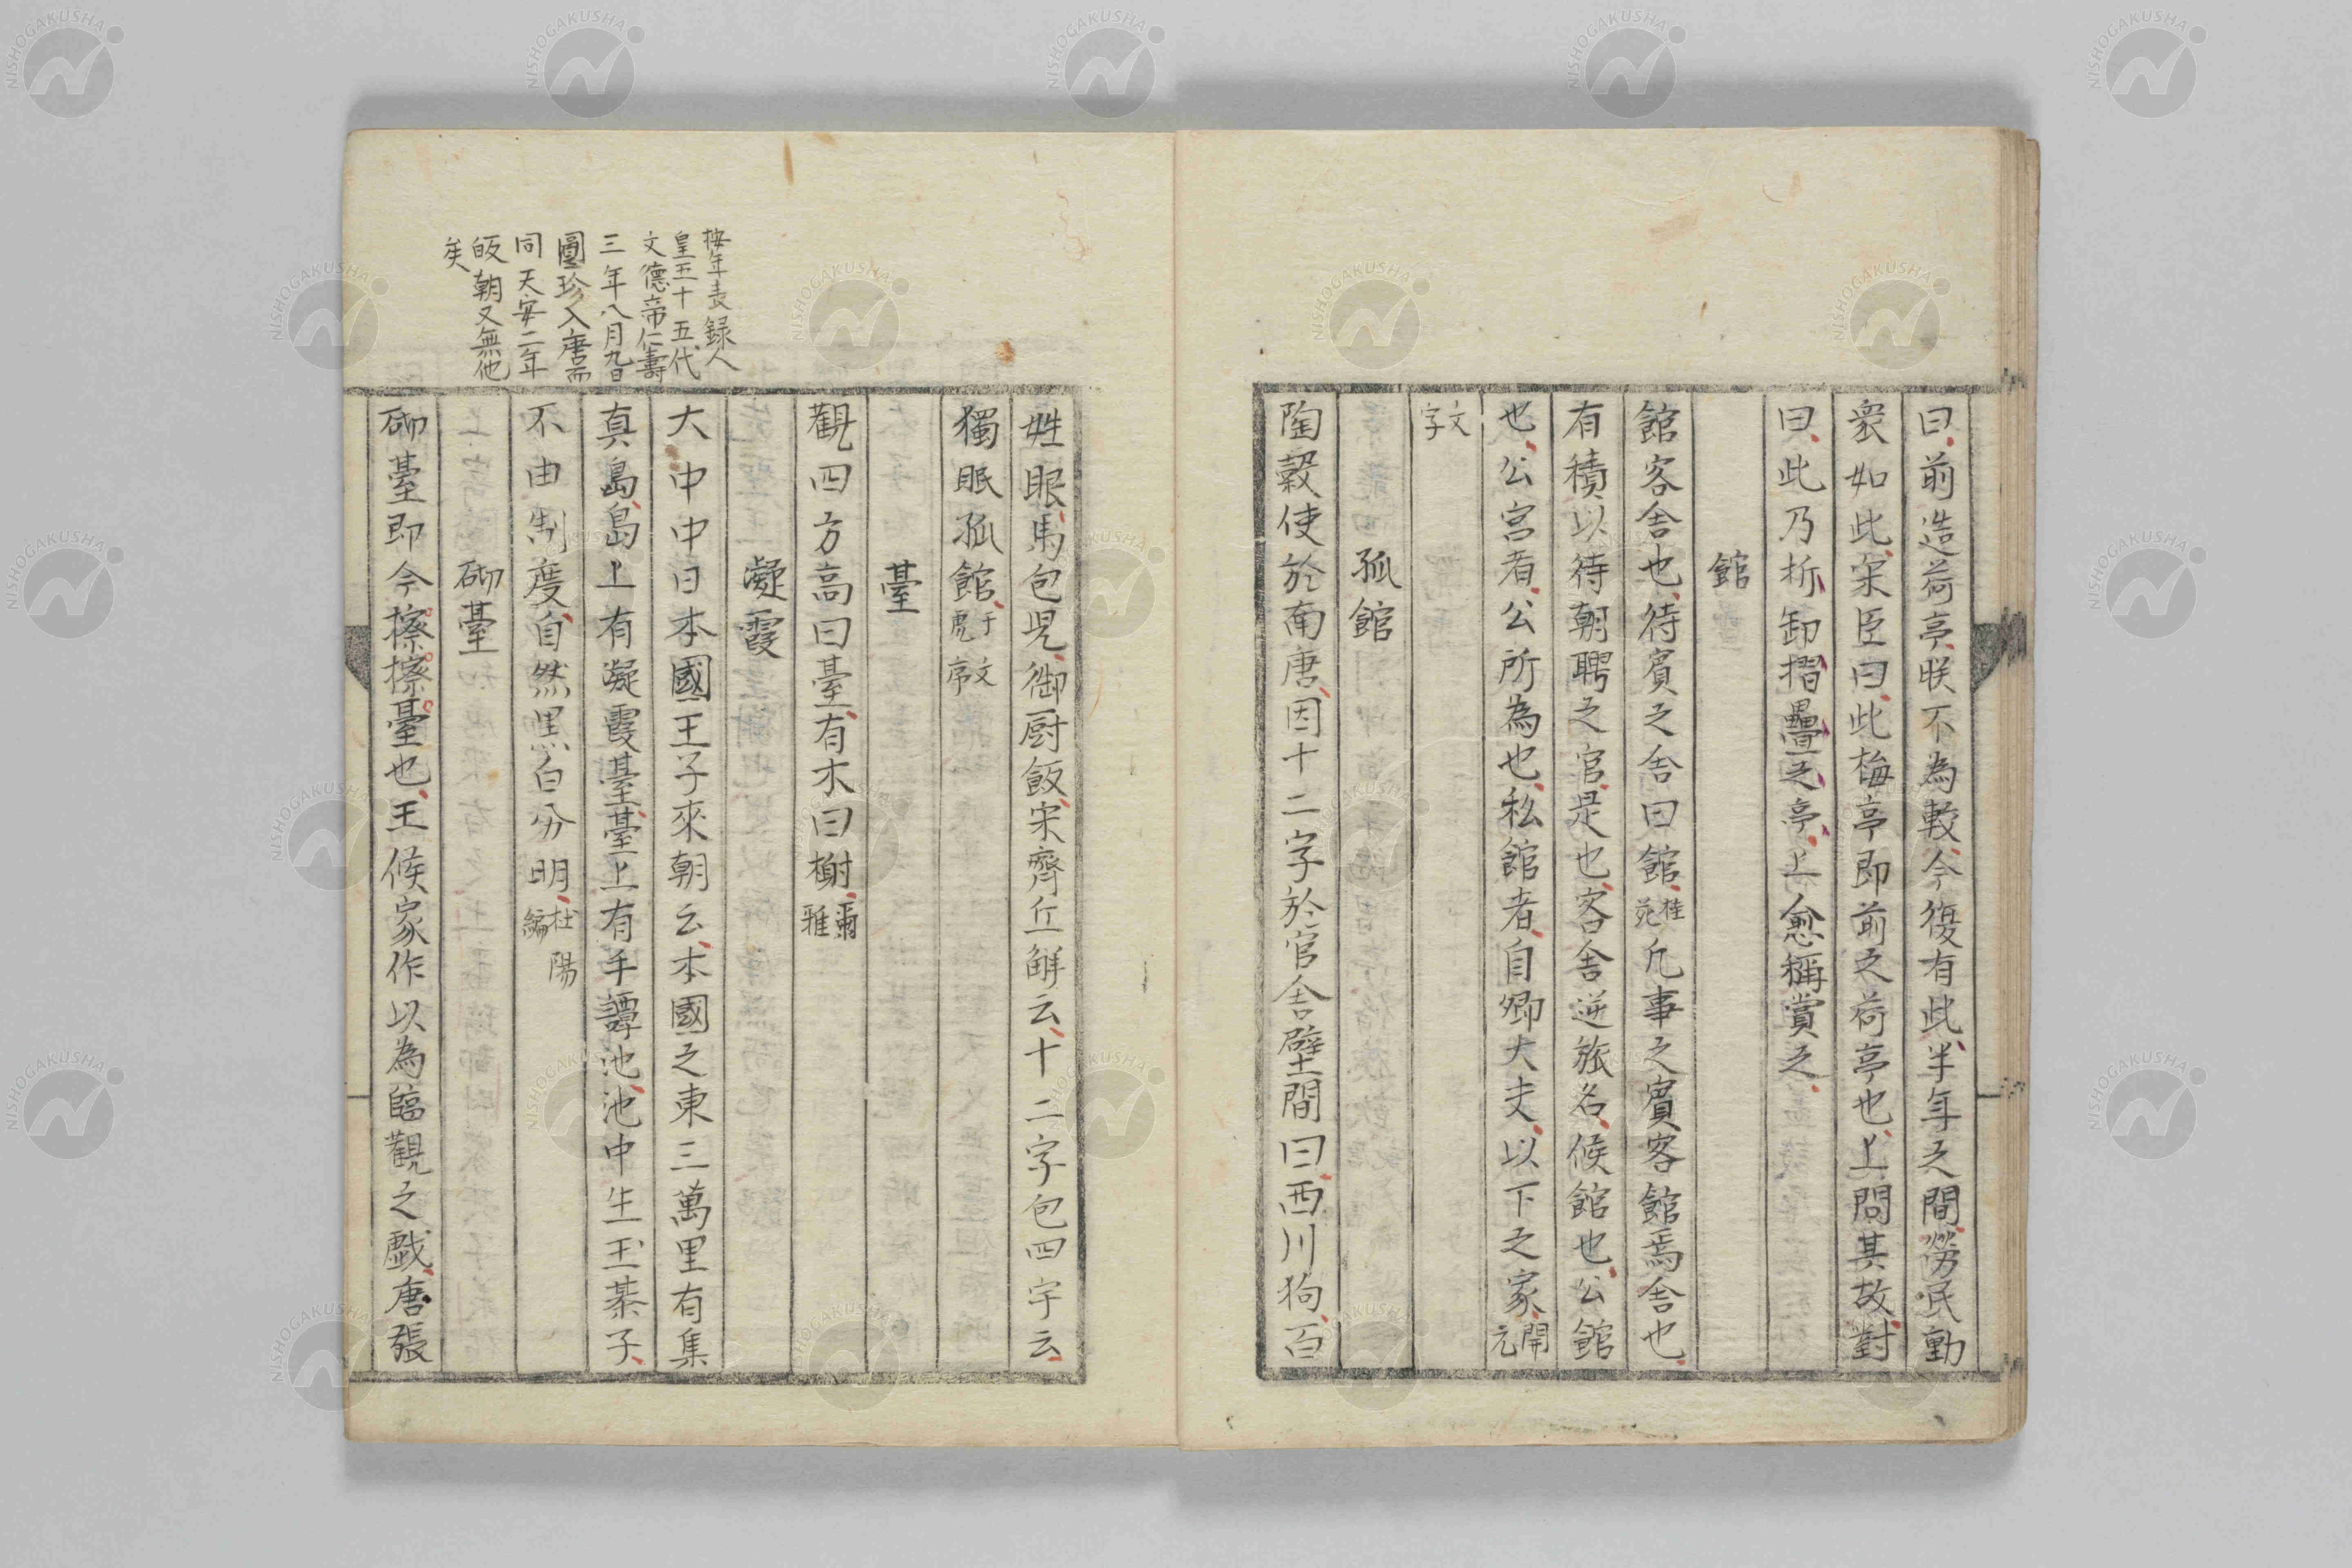 曰前造荷亭朕不為較今復有此半年之間勞民動
衆如此梁臣曰此梅亭即前之荷亭也上問其故對
曰此乃折卸摺疊之亭上愈稱賞之
館
館客舎也待賓之舎曰館桂苑凡事之賓客館焉舎也
有積以待朝聘之官是也客舎逆旅名候館也公館
也公宮者公所為也私館者自卿大夫以下之家開元
文字
孤館
陶穀使於南唐因十二字於官舎壁間曰西川狗百
姓眼馬包児御厨飯宋齊丘觧云十二字包四字云
獨眠孤館
臺
觀四方高曰臺有木曰榭爾雅
凝霞
大中中日本國王子來朝云本國之東三萬里有集
真島島上有凝霞臺臺上有手譚池池中生玉棊子
不由制度自然黒白分明杜陽編
砌臺
砌臺即今擦擦臺也王候家作以為臨觀之戯唐張
按年表録人
皇五十五代
文德帝仁壽
三年八月九日
圓珍入唐而
同天安二年
皈朝又無他
矣
NISHOGAKUSHA